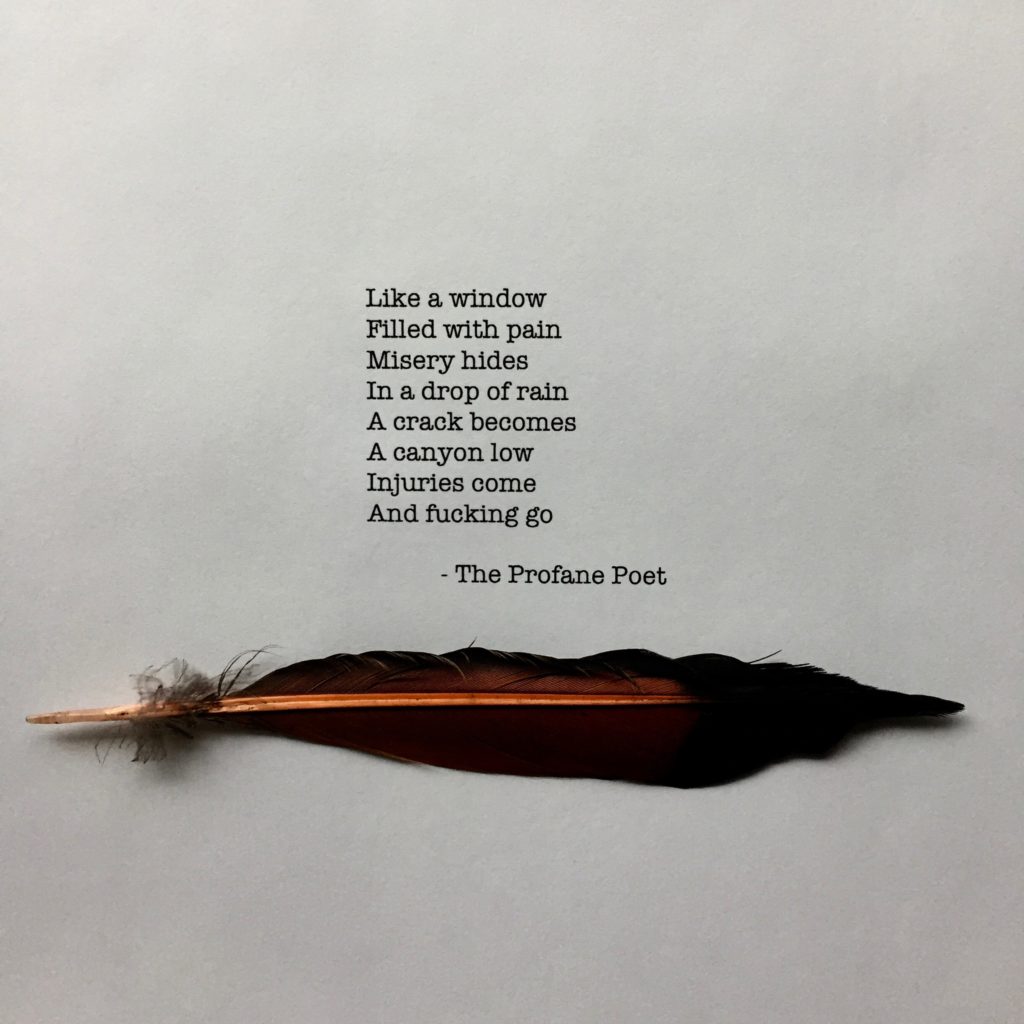 Like a window
Filled with pain
Misery hides
In a drop of rain
A crack becomes
A canyon low
Injuries come
And fucking go
- The Profane Poet